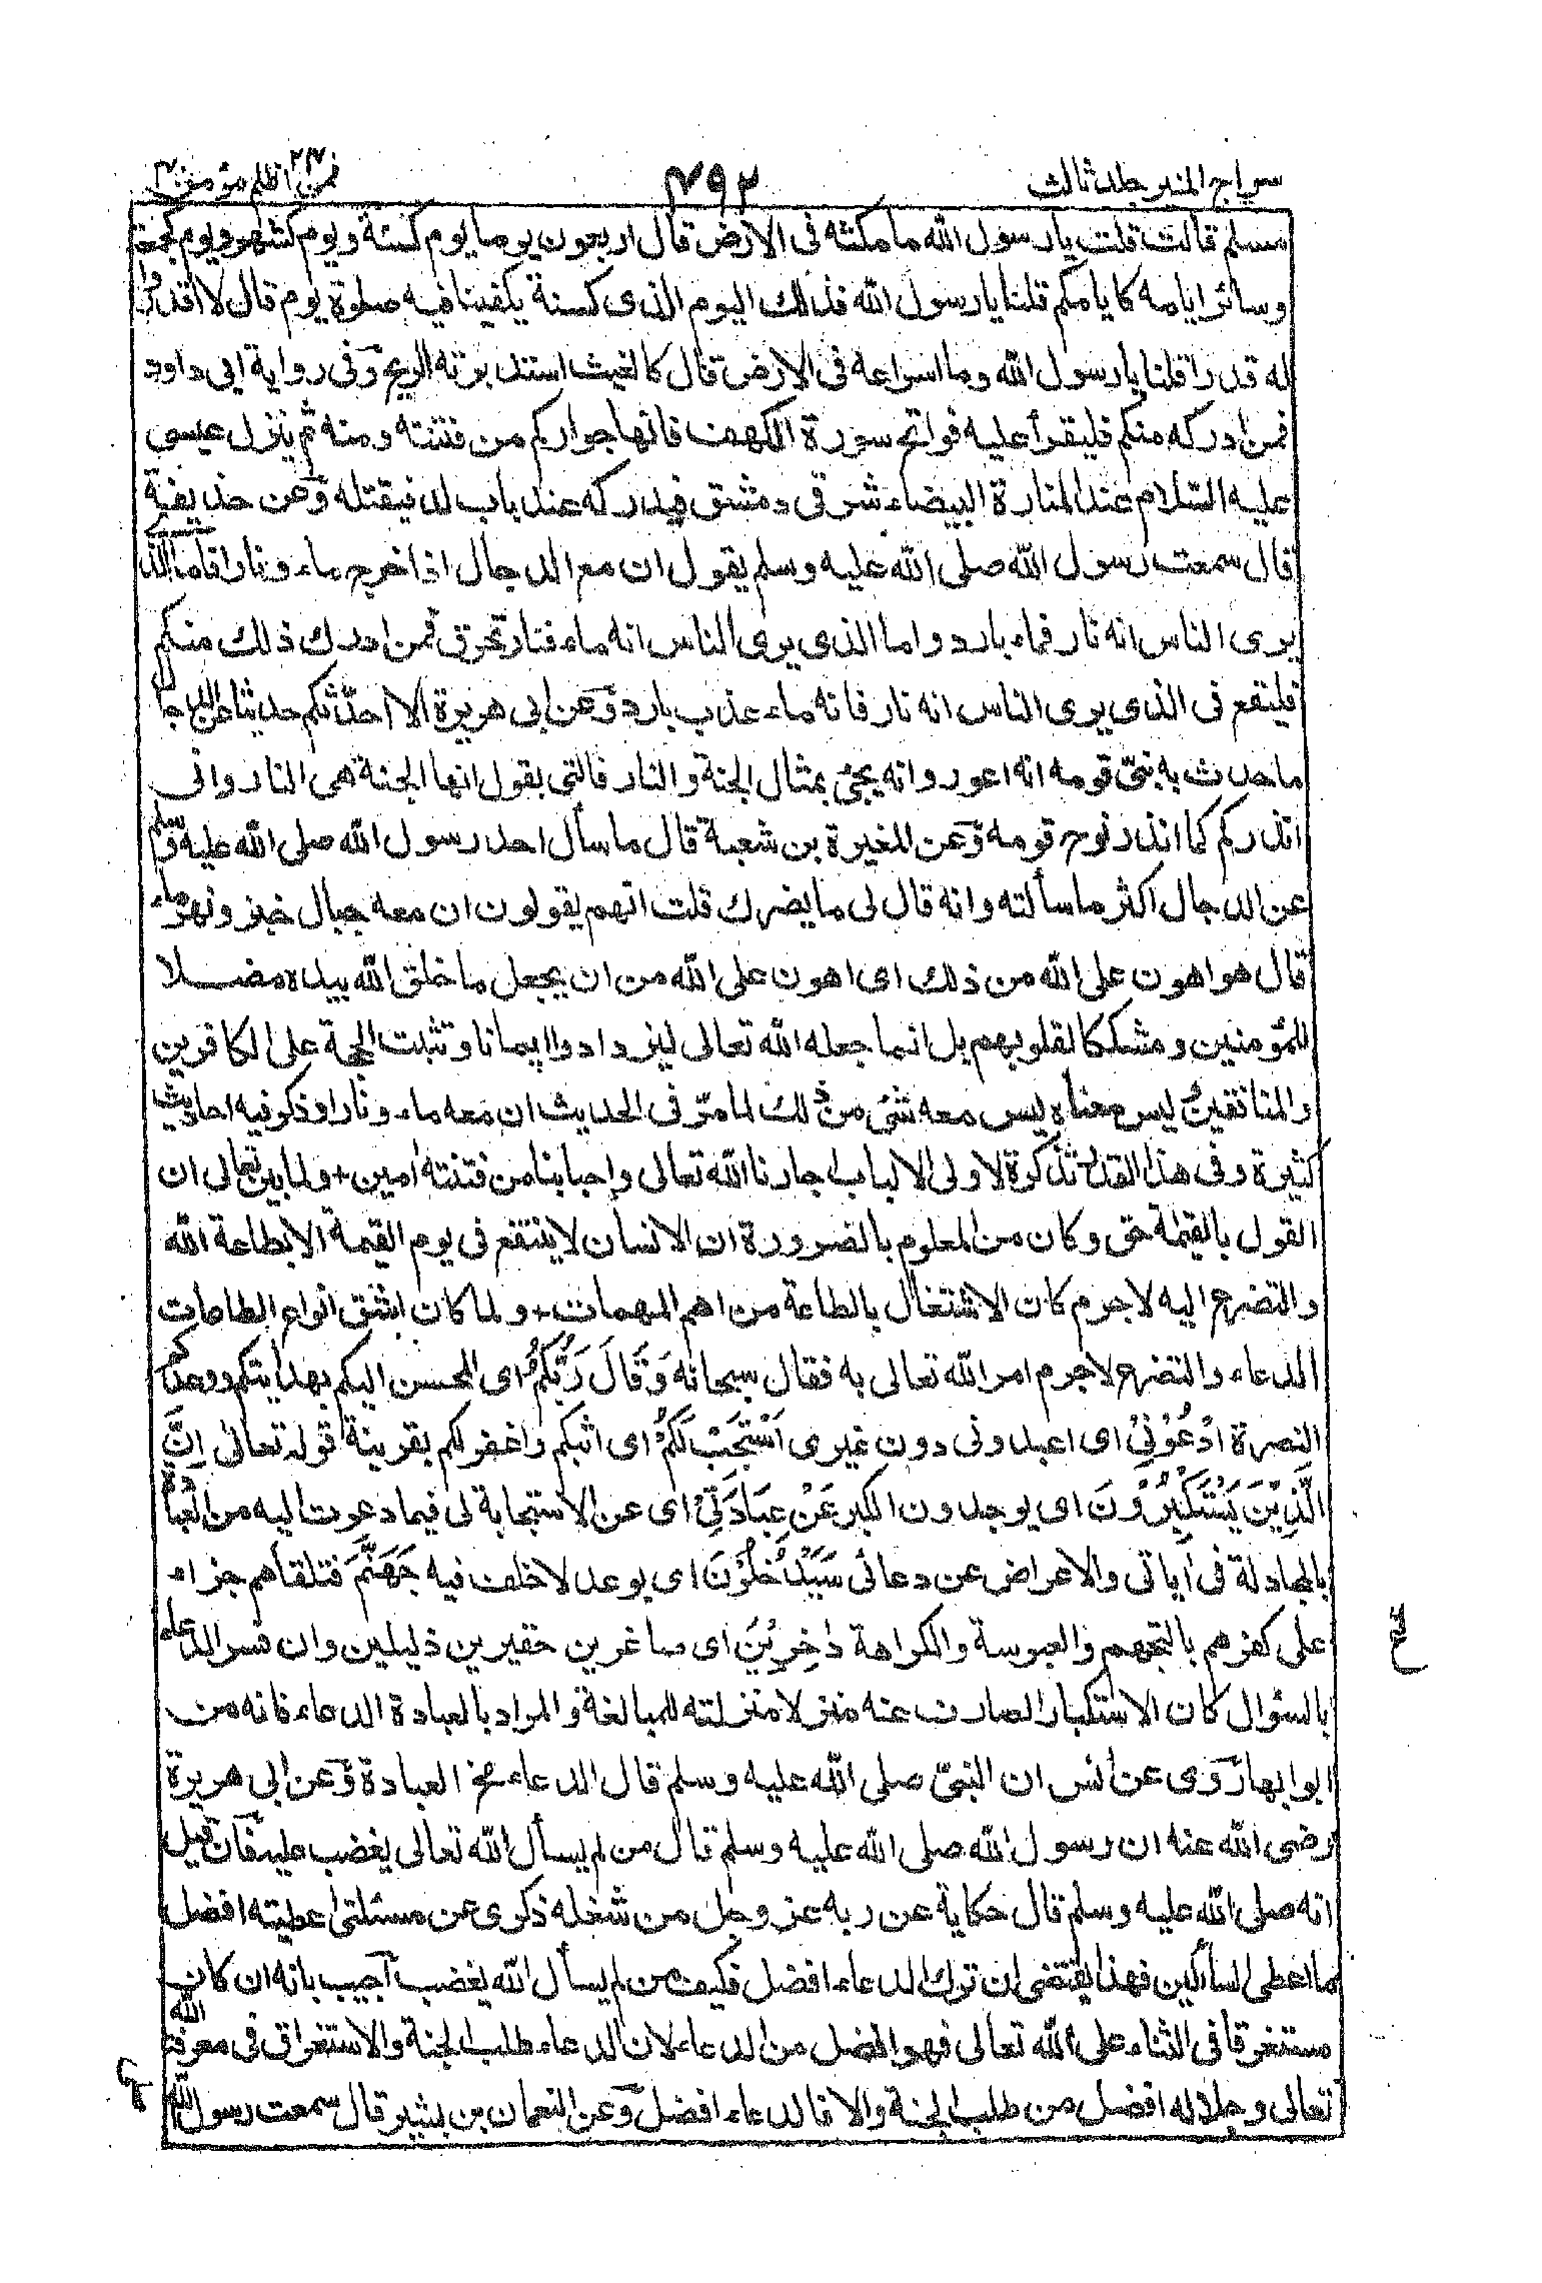 سراج المنير جلد ثالث
٧٩٢
فمن اظلم ٢٤ مؤمن ٤٠
مسلم قالت قلت يا رسول الله ما مكثه فى الارض قال اربعون يوما يوم كسنة ويوم كشهر ويوم كجمعة
وسائر ايامه كايامكم قلنا يا رسول الله فذلك اليوم الذى كسنة يكفينا فيه صلوة يوم قال لا اقدروا
له قدرا قلنا يا رسول الله وما اسراعه فى الارض قال كالغيث استدبرته الريح وفى رواية ابى داود
فمن ادركه منكم فليقرأ عليه فواتح سورة الكهف فانها جواركم من فتنته ومنه ثم ينزل عيسى
عليه السلام عند المنارة البيضاء شرقى دمشق فيدركه عند باب لد فيقتله وعن حذيفة
قال سمعت رسول الله صلى الله عليه وسلم يقول ان مع الدجال اذا خرج ماء ونارا فاما الذى
يرى الناس انه نار فماء بارد واما الذى يرى الناس انه ماء فنار تحرق فمن ادرك ذلك منكم
فليقع فى الذى يرى الناس انه نار فانه ماء عذب بارد وعن ابى هريرة الا احدّثكم حديثا عن الدجال
ما حدث به نبىّ قومه انه اعور وانه يجئ بمثال الجنة والنار فالتى يقول انها الجنة هى النار وانى
انذركم كما انذر نوح قومه وعن المغيرة بن شعبة قال ما سأل احد رسول الله صلى الله عليه وسلم
عن الدجال اكثر ما سألته وانه قال لى ما يضرك قلت انهم يقولون ان معه جبال خبز ونهر ماء
قال هو اهون على الله من ذلك اى اهون على الله من ان يجعل ما خلق الله بيده مضلا
للمؤمنين ومشككا لقلوبهم بل انما جعله الله تعالى ليزدادوا ايمانا وتثبت الحجة على الكافرين
والمنافقين وليس معناه ليس معه شئ من ذلك لما مرّ فى الحديث ان معه ماء ونارا وذكر فيه احاديث
كثيرة وفى هذا القدر تذكرة لاولى الالباب اجارنا الله تعالى واحبابنا من فتنته امين + ولما بين تعالى ان
القول بالقيمة حق وكان من المعلوم بالضرورة ان الانسان لا ينتفع فى يوم القيمة الا بطاعة الله
والتضرع اليه لاجرم كان الاشتغال بالطاعة من اهم المهمات + ولما كان اشق انواع الطاعات
الدعاء والتضرع لاجرم امر الله تعالى به فقال سبحانه وَقَالَ رَبُّكُمُ اى المحسن اليكم بهدايتكم ووعدكم
النصرة ادْعُوْنِىْ اى اعبدونى دون غيرى اَسْتَجِبْ لَكُمْ اى اثبكم واغفر لكم بقرينة قوله تعالى اِنَّ
الَّذِيْنَ يَسْتَكْبِرُوْنَ اى يوجدون الكبر عَنْ عِبَادَتِىْ اى عن الاستجابة لى فيما دعوت اليه من العبادة
بالمجادلة فى اياتى والاعراض عن دعائى سَيَدْخُلُوْنَ اى بوعد لا خلف فيه جَهَنَّمَ فتلقاهم جزاء
على كفرهم بالتجهم والعبوسة والكراهة دَاخِرِيْنَ اى صاغرين حقيرين ذليلين وان فسر الدعاء
بالسؤال كان الاستكبار الصارف عنه منزلا منزلته للمبالغة والمراد بالعبادة الدعاء فانه من
ابوابها روى عن انس ان النبىّ صلى الله عليه وسلم قال الدعاء مخ العبادة وعن ابى هريرة
رضى الله عنه ان رسول الله صلى الله عليه وسلم قال من لم يسأل الله تعالى يغضب عليه فان قيل
انه صلى الله عليه وسلم قال حكاية عن ربه عز وجل من شغله ذكرى عن مسئلتى اعطيته افضل
ما اعطى السائلين فهذا يقتضى ان ترك الدعاء افضل فكيف من لم يسأل الله يغضب اجيب بانه ان كان
مستغرقا فى الثناء على الله تعالى فهو افضل من الدعاء لان الدعاء طلب الجنة والاستغراق فى معرفة الله
تعالى وجلاله افضل من طلب الجنة والا فالدعاء افضل وعن النعمان بن بشير قال سمعت رسول الله